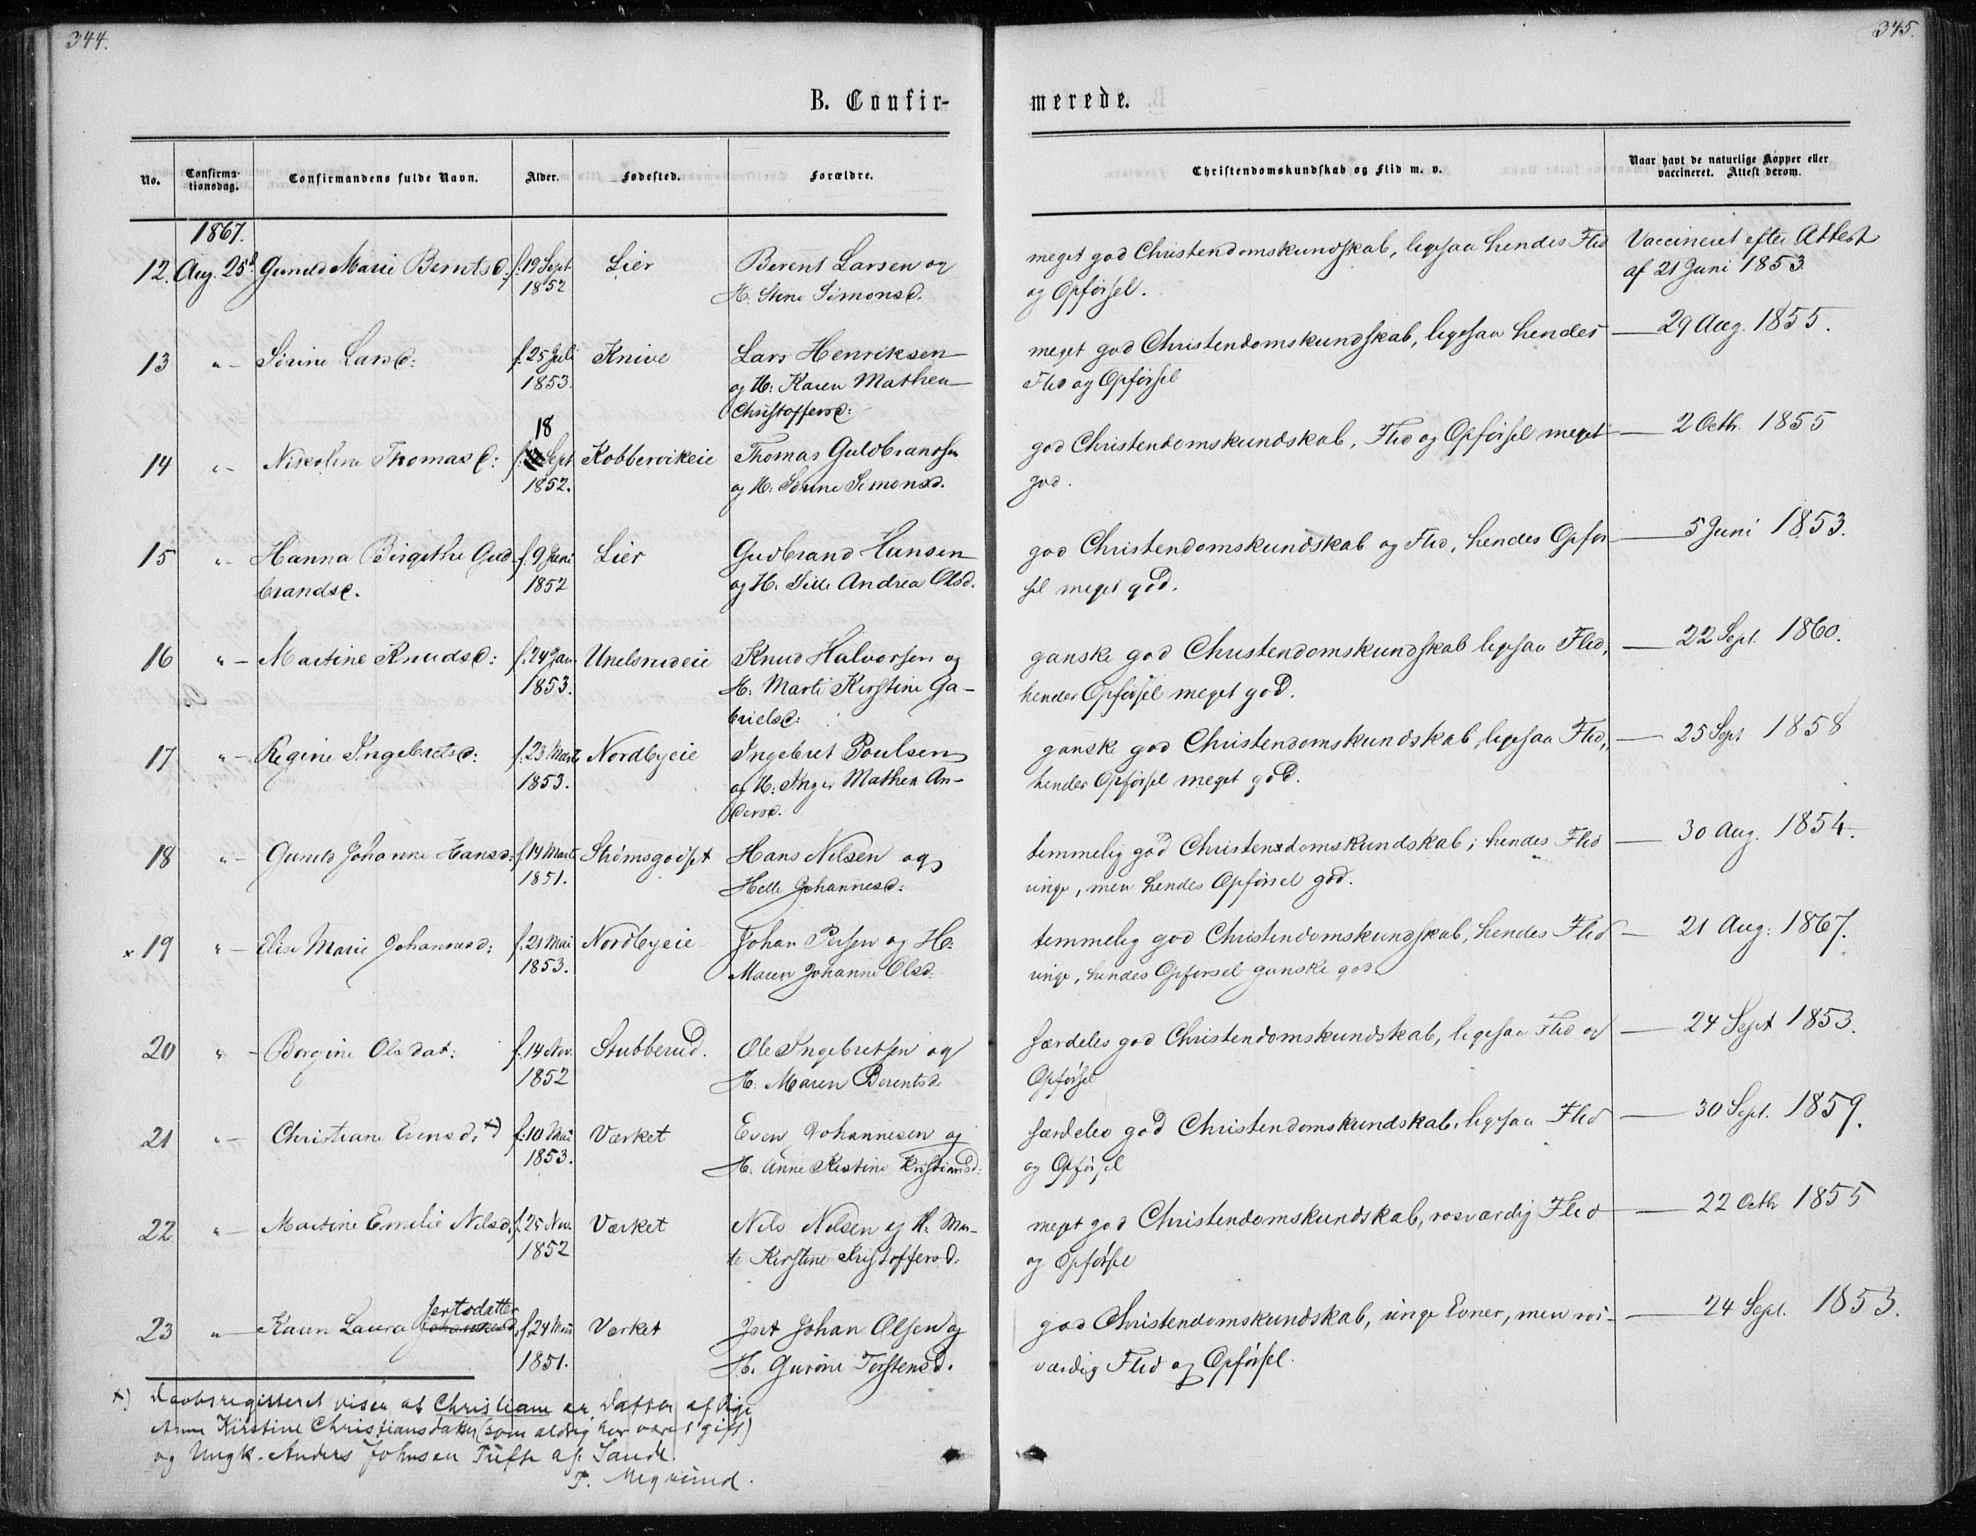 344.
345.
B. Confir-
merede.
No.
Confirma-
tionsdag.
Confirmandens fulde Navn.
Alder.
Fødested.
Forældre.
Christendomskundskab og Flid m. v.
Naar havt de naturlige Kopper eller
vaccineret. Attest derom.
1867.
12. Aug. 25d Gunild Marie Berntsd. f. 19 Sept Lier Berent Larsen og meget god Christendomskundskab, ligesaa hendes Flid Vaccineret efter Attest
1852 H. Stine Simonsd. og Opførsel. af 21 Juni 1853.
13 "- Sørine Larsd: f. 25 Juli Knive Lars Henriksen meget god Christendomskundskab, ligesaa hendes — 29 Aug. 1855.
1853. og H: Karen Mathea Flid og Opførsel
Christoffersd:
18
14 "- Nikoline Thomasd: f. Sept Kobbervikeie Thomas Guldbrandsen god Christendomskundskab, Flid og Opførsel meget — 2 Octb. 1855
1852. og H: Sørine Simonsd. god.
15 "- Hanna Birgithe Gud- f. 9 Juni Lier Gudbrand Hansen god Christendomskundskab og Flid, hendes Opfør — 5 Juni 1853.
brandsd. 1852 og H. Sille Andrea Olsd. sel meget god.
16 "- Martine Knudsd: f. 24 Jan Unelsrudeie Knud Halvorsen og ganske god Christendomskundskab ligesaa Flid, — 22 Sept. 1860.
1853. H. Marti Kirstine Ga- hendes Opførsel meget god.
brielsd:
17 "- Regine Ingebretsd: f. 23 Marts Nordbyeie Ingebret Poulsen ganske god Christendomskundskab, ligesaa Flid, — 25 Sept 1858
1853. og H: Inger Mathea An- hendes Opførsel meget god.
dersd.
18 "- Gunild Johanne Hansd: f. 14 Marts Strømsgodset Hans Nilsen og temmelig god Christendomskundskab; hendes Flid — 30 Aug. 1854.
1851. Helle Johannesd: ringe, men hendes Opførsel god.
x 19 "- Elise Marie Johannesd: f. 21 Mai Nordbyeie Johan Persen og H: temmelig god Christendomskundskab, hendes Flid — 21 Aug: 1867.
1853. Maren Johanne Olsd. ringe, hendes Opførsel ganske god.
20 "- Borgine Olsdat: f. 14 Nov. Stubberud. Ole Ingebretsen og særdeles god Christendomskundskab, ligesaa Flid og — 24 Sept 1853.
1852 H. Maren Berentsd: Opførsel
21 "- Christiane Evensd: x) f. 10 Mai Værket Even Johannesen og særdeles god Christendomskundskab, ligesaa Flid — 30 Sept. 1859.
1853. H. Anne Kistine Kristiansd: og Opførsel
22 "- Martine Emilie Nilsd. f. 25 Nov. Værket Nils Nilsen og H. Mar- meget god Christendomskundskab, rosværdig Flid — 22 Octb 1855
1852 te Kirstine Kristoffersd. og Opførsel
Jertsdatter
23 "- Karen Laura Johannesd. f. 24 Mai Værket Jert Johan Olsen og god Christendomskundskab, ringe Evner, men ros- — 24 Sept. 1853.
1851. H. Gurine Torstensd. værdig Flid og Opførsel.
x) Daabsregisteret viser at Christiane er Datter af Pige
Anne Kirstine Christiansdatter (som aldrig har været gift)
og Ungk. Anders Johnsen Tufte af Sande.